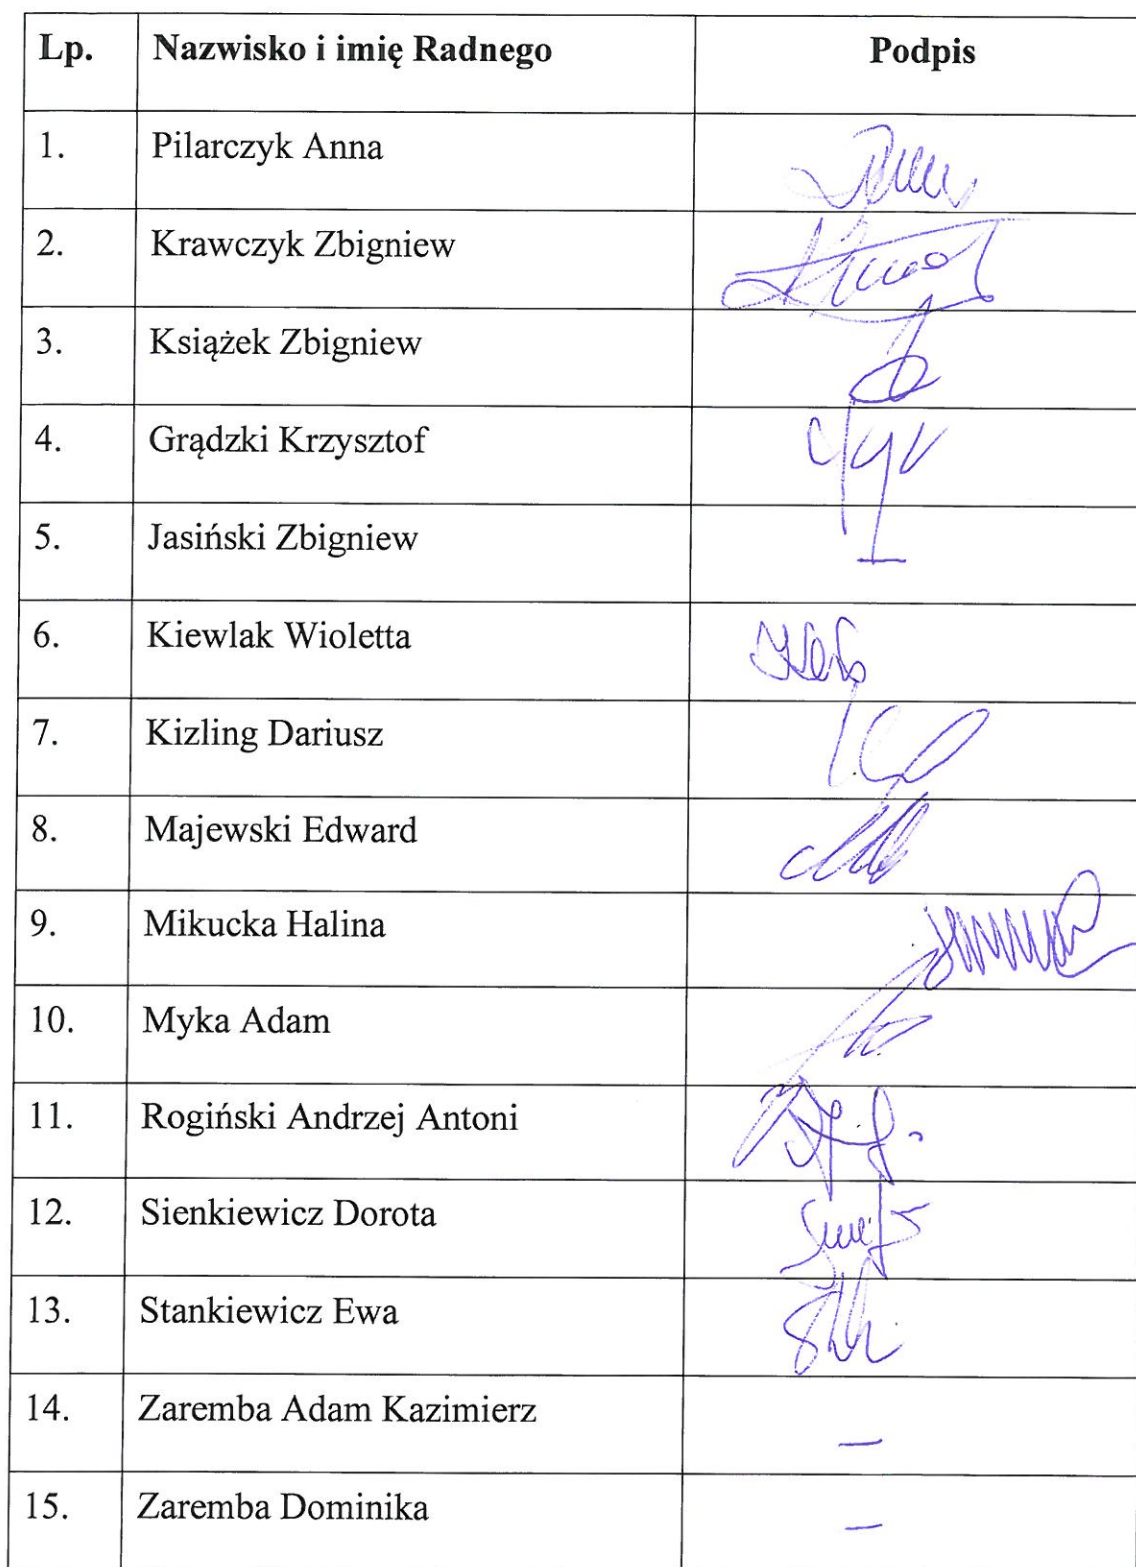 Lp. Nazwisko i imię Radnego Podpis
1. Pilarczyk Anna
2. Krawczyk Zbigniew
3. Książek Zbigniew
4. Grądzki Krzysztof
5. Jasiński Zbigniew —
6. Kiewlak Wioletta
7. Kizling Dariusz
8. Majewski Edward
9. Mikucka Halina
10. Myka Adam
11. Rogiński Andrzej Antoni
12. Sienkiewicz Dorota
13. Stankiewicz Ewa
14. Zaremba Adam Kazimierz —
15. Zaremba Dominika —